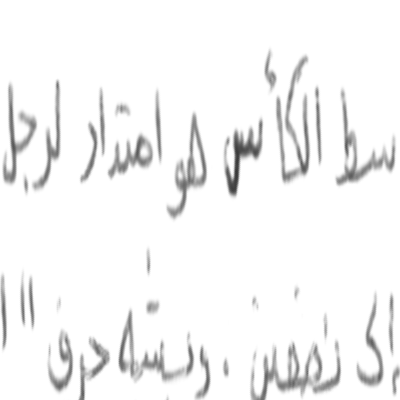 سط الكأس هو امتداد لرجل
إلى نصفين . ويشبه حرف " ا